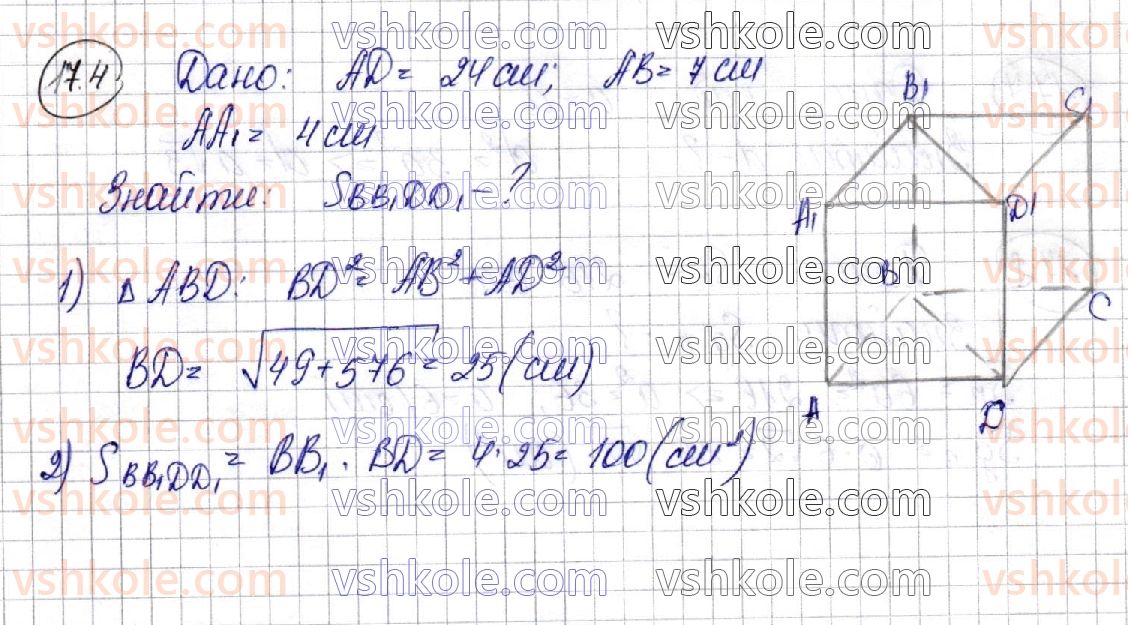 17.4 Дано: AD = 24 см; AB = 7 см
AA₁ = 4 см
Знайти: S_BB₁DD₁ - ?
1) △ABD: BD² = AB² + AD²
BD = √49+576 = 25 (см)
2) S_BB₁DD₁ = BB₁ · BD = 4 · 25 = 100 (см²)
B₁
C₁
A₁
D₁
B
C
A
D
vshkole.com vshkole.com vshkole.com vshkole.com
vshkole.com vshkole.com vshkole.com vshkole.com
vshkole.com vshkole.com vshkole.com vshkole.com
vshkole.com vshkole.com vshkole.com vshkole.com
vshkole.com vshkole.com vshkole.com vshkole.com
vshkole.com vshkole.com vshkole.com vshkole.com
vshkole.com vshkole.com vshkole.com vshkole.com
vshkole.com vshkole.com vshkole.com vshkole.com